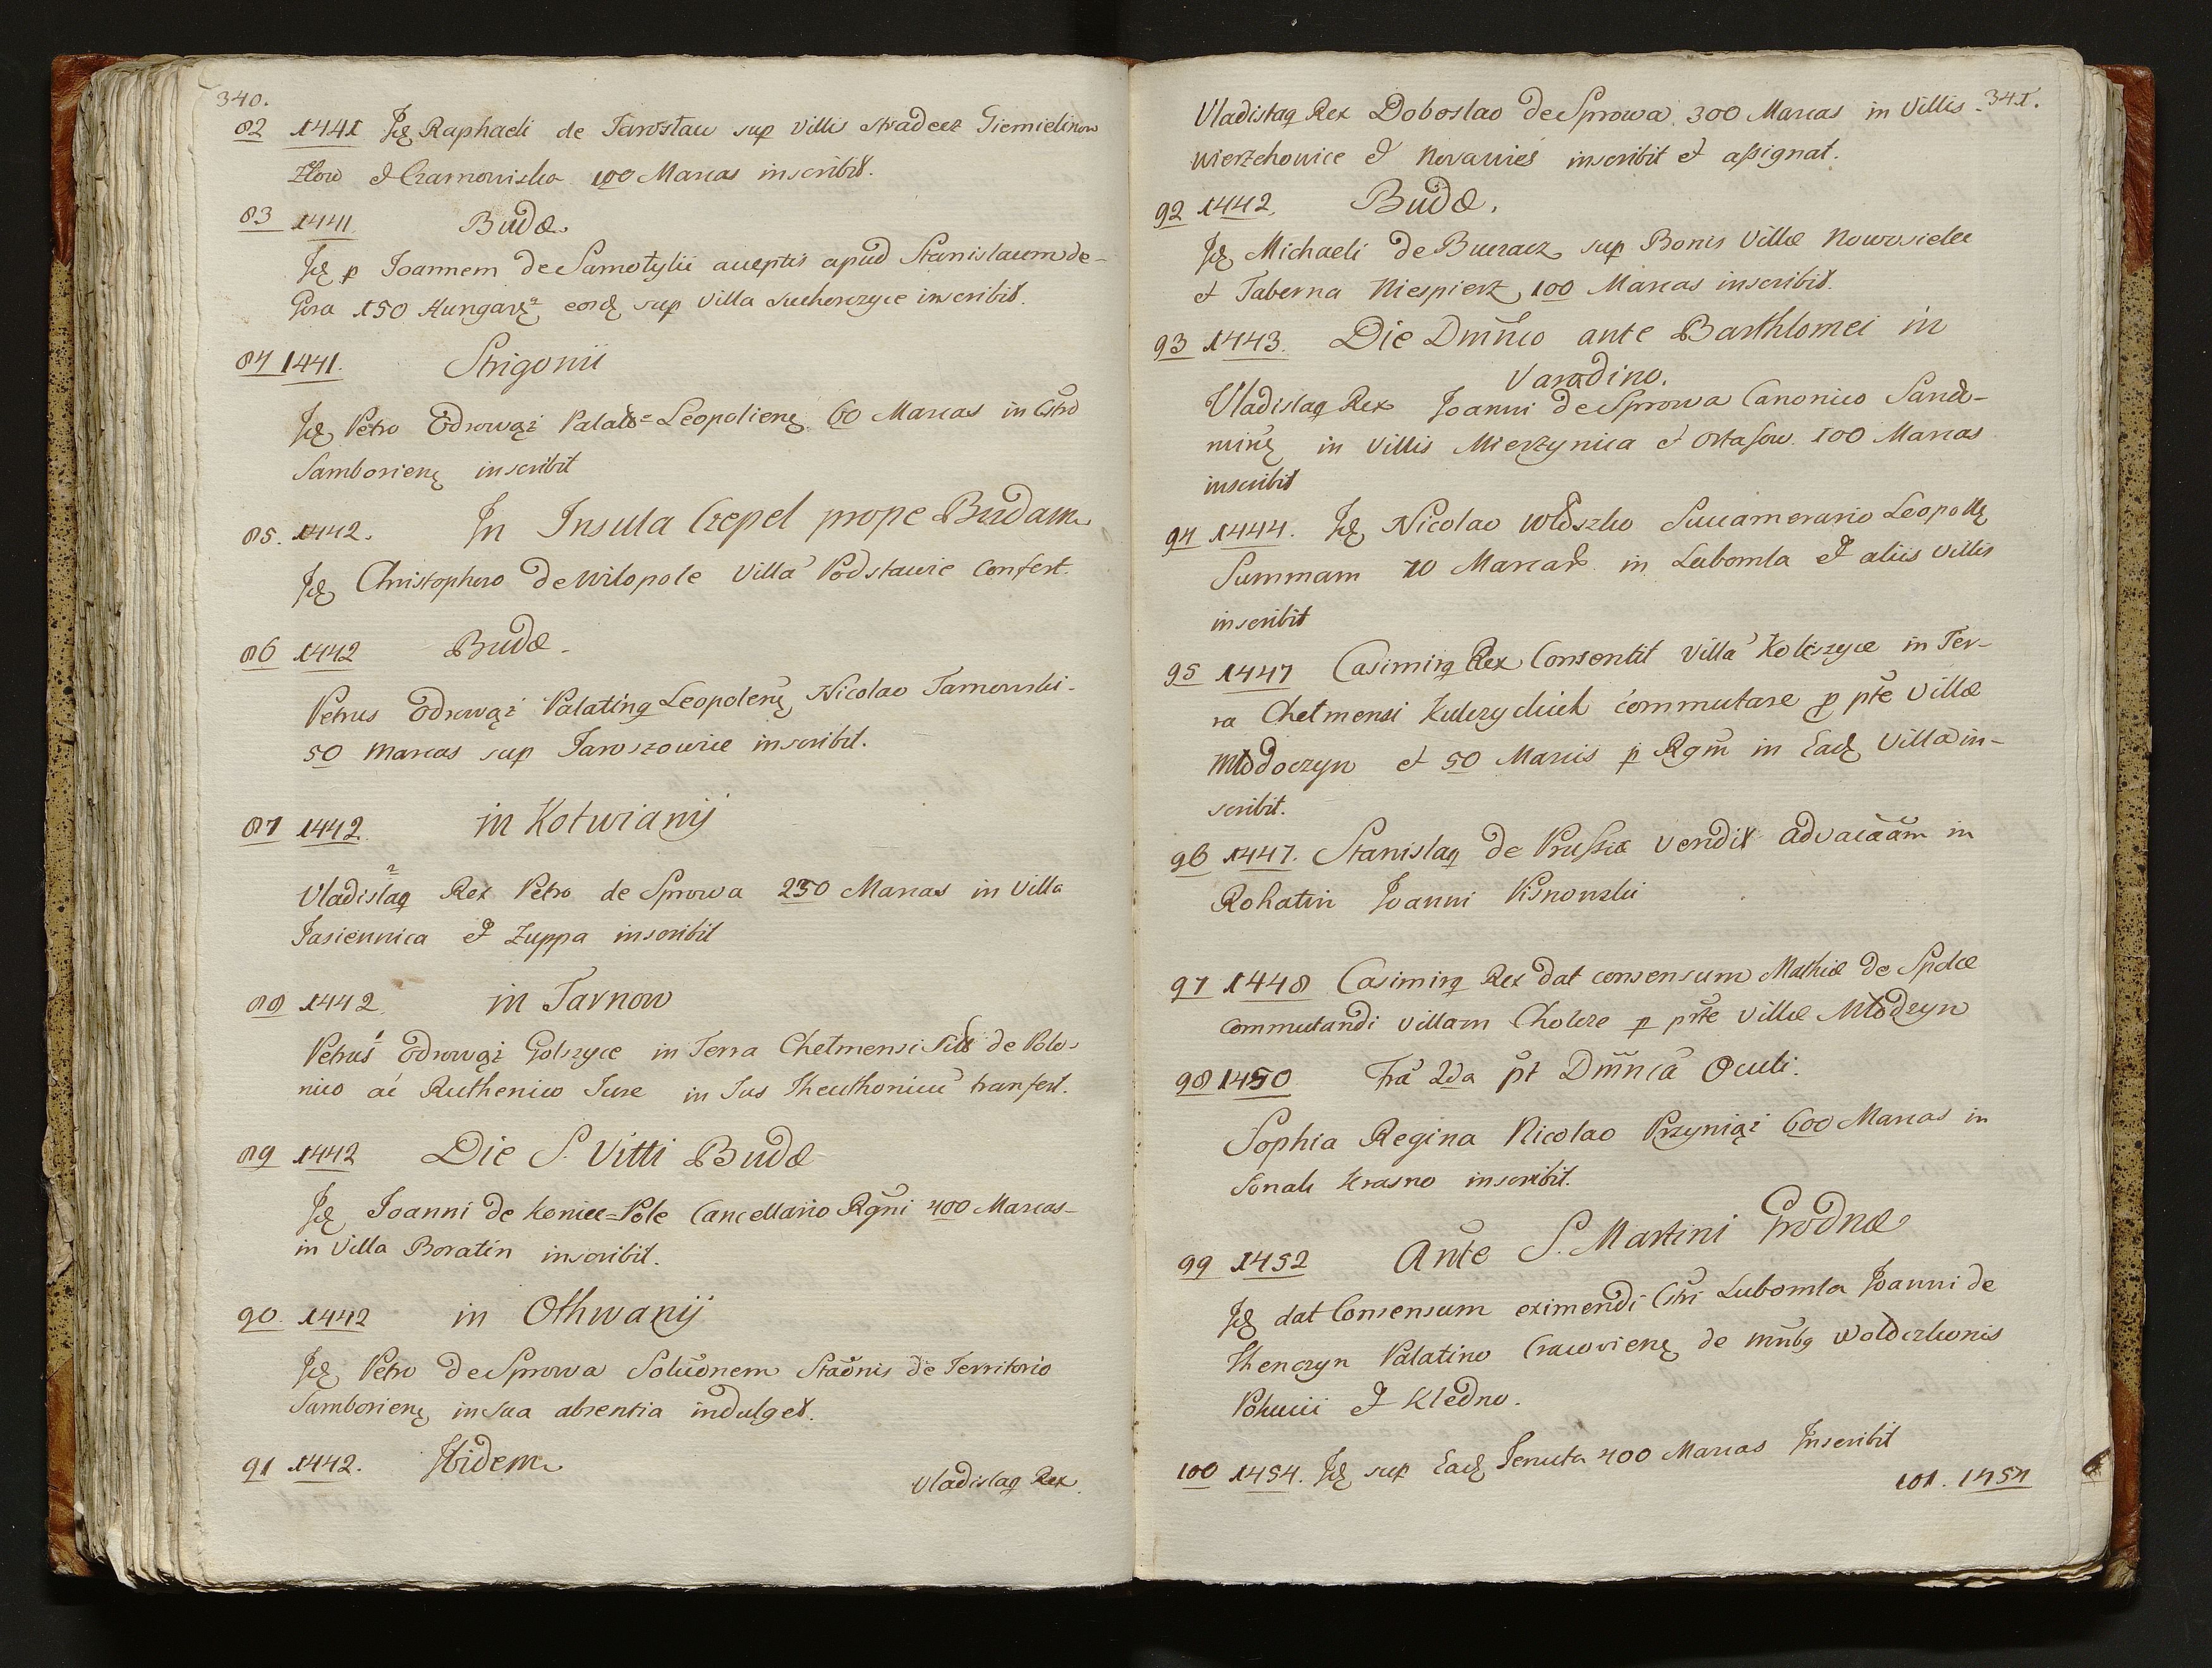 340.
82 1441 Jdȩ Raphaeli de Jarosław sup villis Stradecz Giemielinow
Złow et Czarnowisko 100 Marcas inscribit.
83 1441. Budæ
Jdȩ p Joannem de Samotylii acceptis apud Stanislaum de-
Gora 150 Hungarȩ eosdȩ sup villa Suchorzyce inscribit.
84 1441. Strigonii
Jdȩ Petro Odrowąż Palat= Leopolienȩ 60 Marcas in Cstro
Samborienȩ inscribit
85. 1442. Jn Insula Czepel prope Budam
Jdȩ Christophoro de Wilopole villa Podstawie Confert.
86 1442 Budæ.
Petrus Odrowąż Palatinq Leopolenȩ Nicolao Tarnowski-
50 Marcas sup Jaroszowice inscribit.
87 1442. in Kotwianij
Uladislaq Rex Petro de Sprowa 230 Marcas in Villa
Jasiennica et Zuppa inscribit
88 1442. in Tarnow
Petrus Odrowąż Golszyce in Terra Chełmensi de Polo-
nico ac Ruthenico Jure in Jus Theuthonicu tranfert.
89 1442 Die S. Vitti Budæ
Jdȩ Joanni de Koniec=Pole Cancellario Rgni 400 Marcas-
in Villa Boratin inscribit.
90. 1442 in Othwanij
Jdȩ Petro de Sprowa Soluonem Staonis de Territorio
Samborienȩ in sua absentia indulget.
91 1442. Jbidem
Uladislaq Rex.
341.
Uladislaq Rex Doboslao de Sprowa 300 Marcas in Villis-
Wierzchowice et Novawies inscribit et assignat.
92 1442. Budæ.
Jdȩ Michaeli de Buczacz sup Bonis Villæ Nowosielce
et Taberna Niespierz 100 Marcas inscribit.
93 1443. Die Dmnco ante Barthlomei in
Varadino.
Uladislaq Rex Joanni de Sprowa Canonico Sando-
mirȩ in Villis Mierzynica et Ostasow 100 Marcas
inscribit
94 1444. Jdȩ Nicolao Włoszko Succamerario Leopollȩ
Summam 70 Marcar in Lubomla et aliis villis
inscribit
95 1447 Casimirq Rex Consentit villa Kolczyce in Ter-
ra Chełmensi Kulczyckich commutare p pte villæ
Młodoczyn et 50 Marcis p Rgm in Eadȩ Villa in-
scribit.
96 1447. Stanislaq de Prussia vendit advocaam in
Rohatin Joanni Pisnowski
97 1448 Casimirq Rex dat consensum Mathiæ de Spdcæ
commutandi villam Cholcze p pte villæ Młodzyn
98 1450 Fra 2da pt Dmnca Oculi.
Sophia Regina Nicolao Przyniąż 600 Marcas in
Sonali Krasno inscribit.
99 1452 Ante S. Martini Grodnæ
Jdȩ dat Consensum eximendi Cstri Lubomla Joanni de
Thenczyn Palatino Cracovienȩ de mnbq Woldczkonis
Pokucii et Kledno.
100 1454. Jdȩ sup Eadȩ Tenuta 400 Marcas Jnscribit
101. 1454